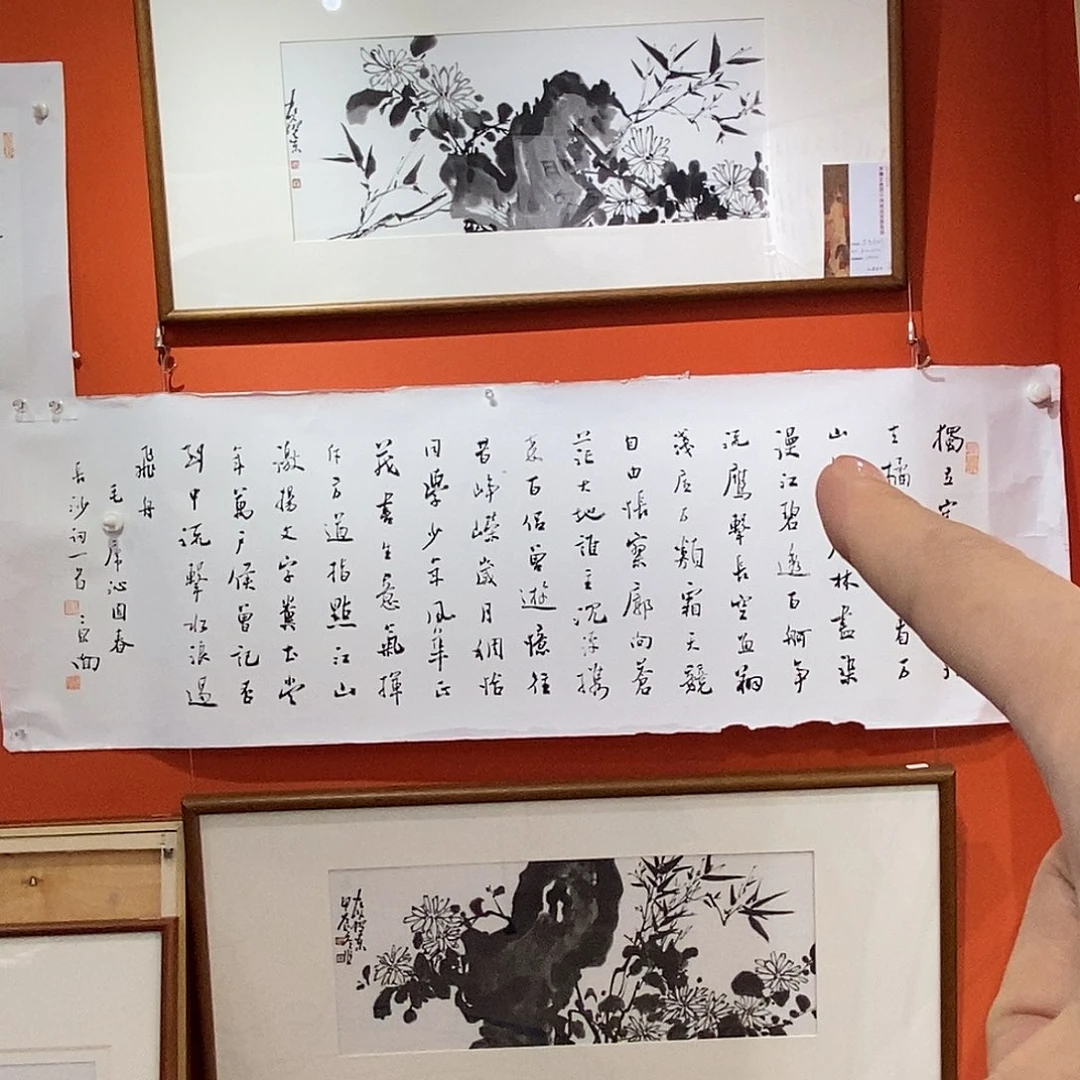 獨立
橘看万
山林盡染
漫江碧透百舸争
流鷹擊長空魚翔
淺底万類霜天競
自由悵寥廓向蒼
茫大地誰主沉浮携
来百侣曾遊憶往
昔峥嶸歲月稠恰
同學少年風華正
茂書生意氣揮
斥方遒指點江山
激揚文字糞土当
年萬户侯曾記否
到中流擊水浪遏
飛舟
毛席沁园春
長沙詞一首